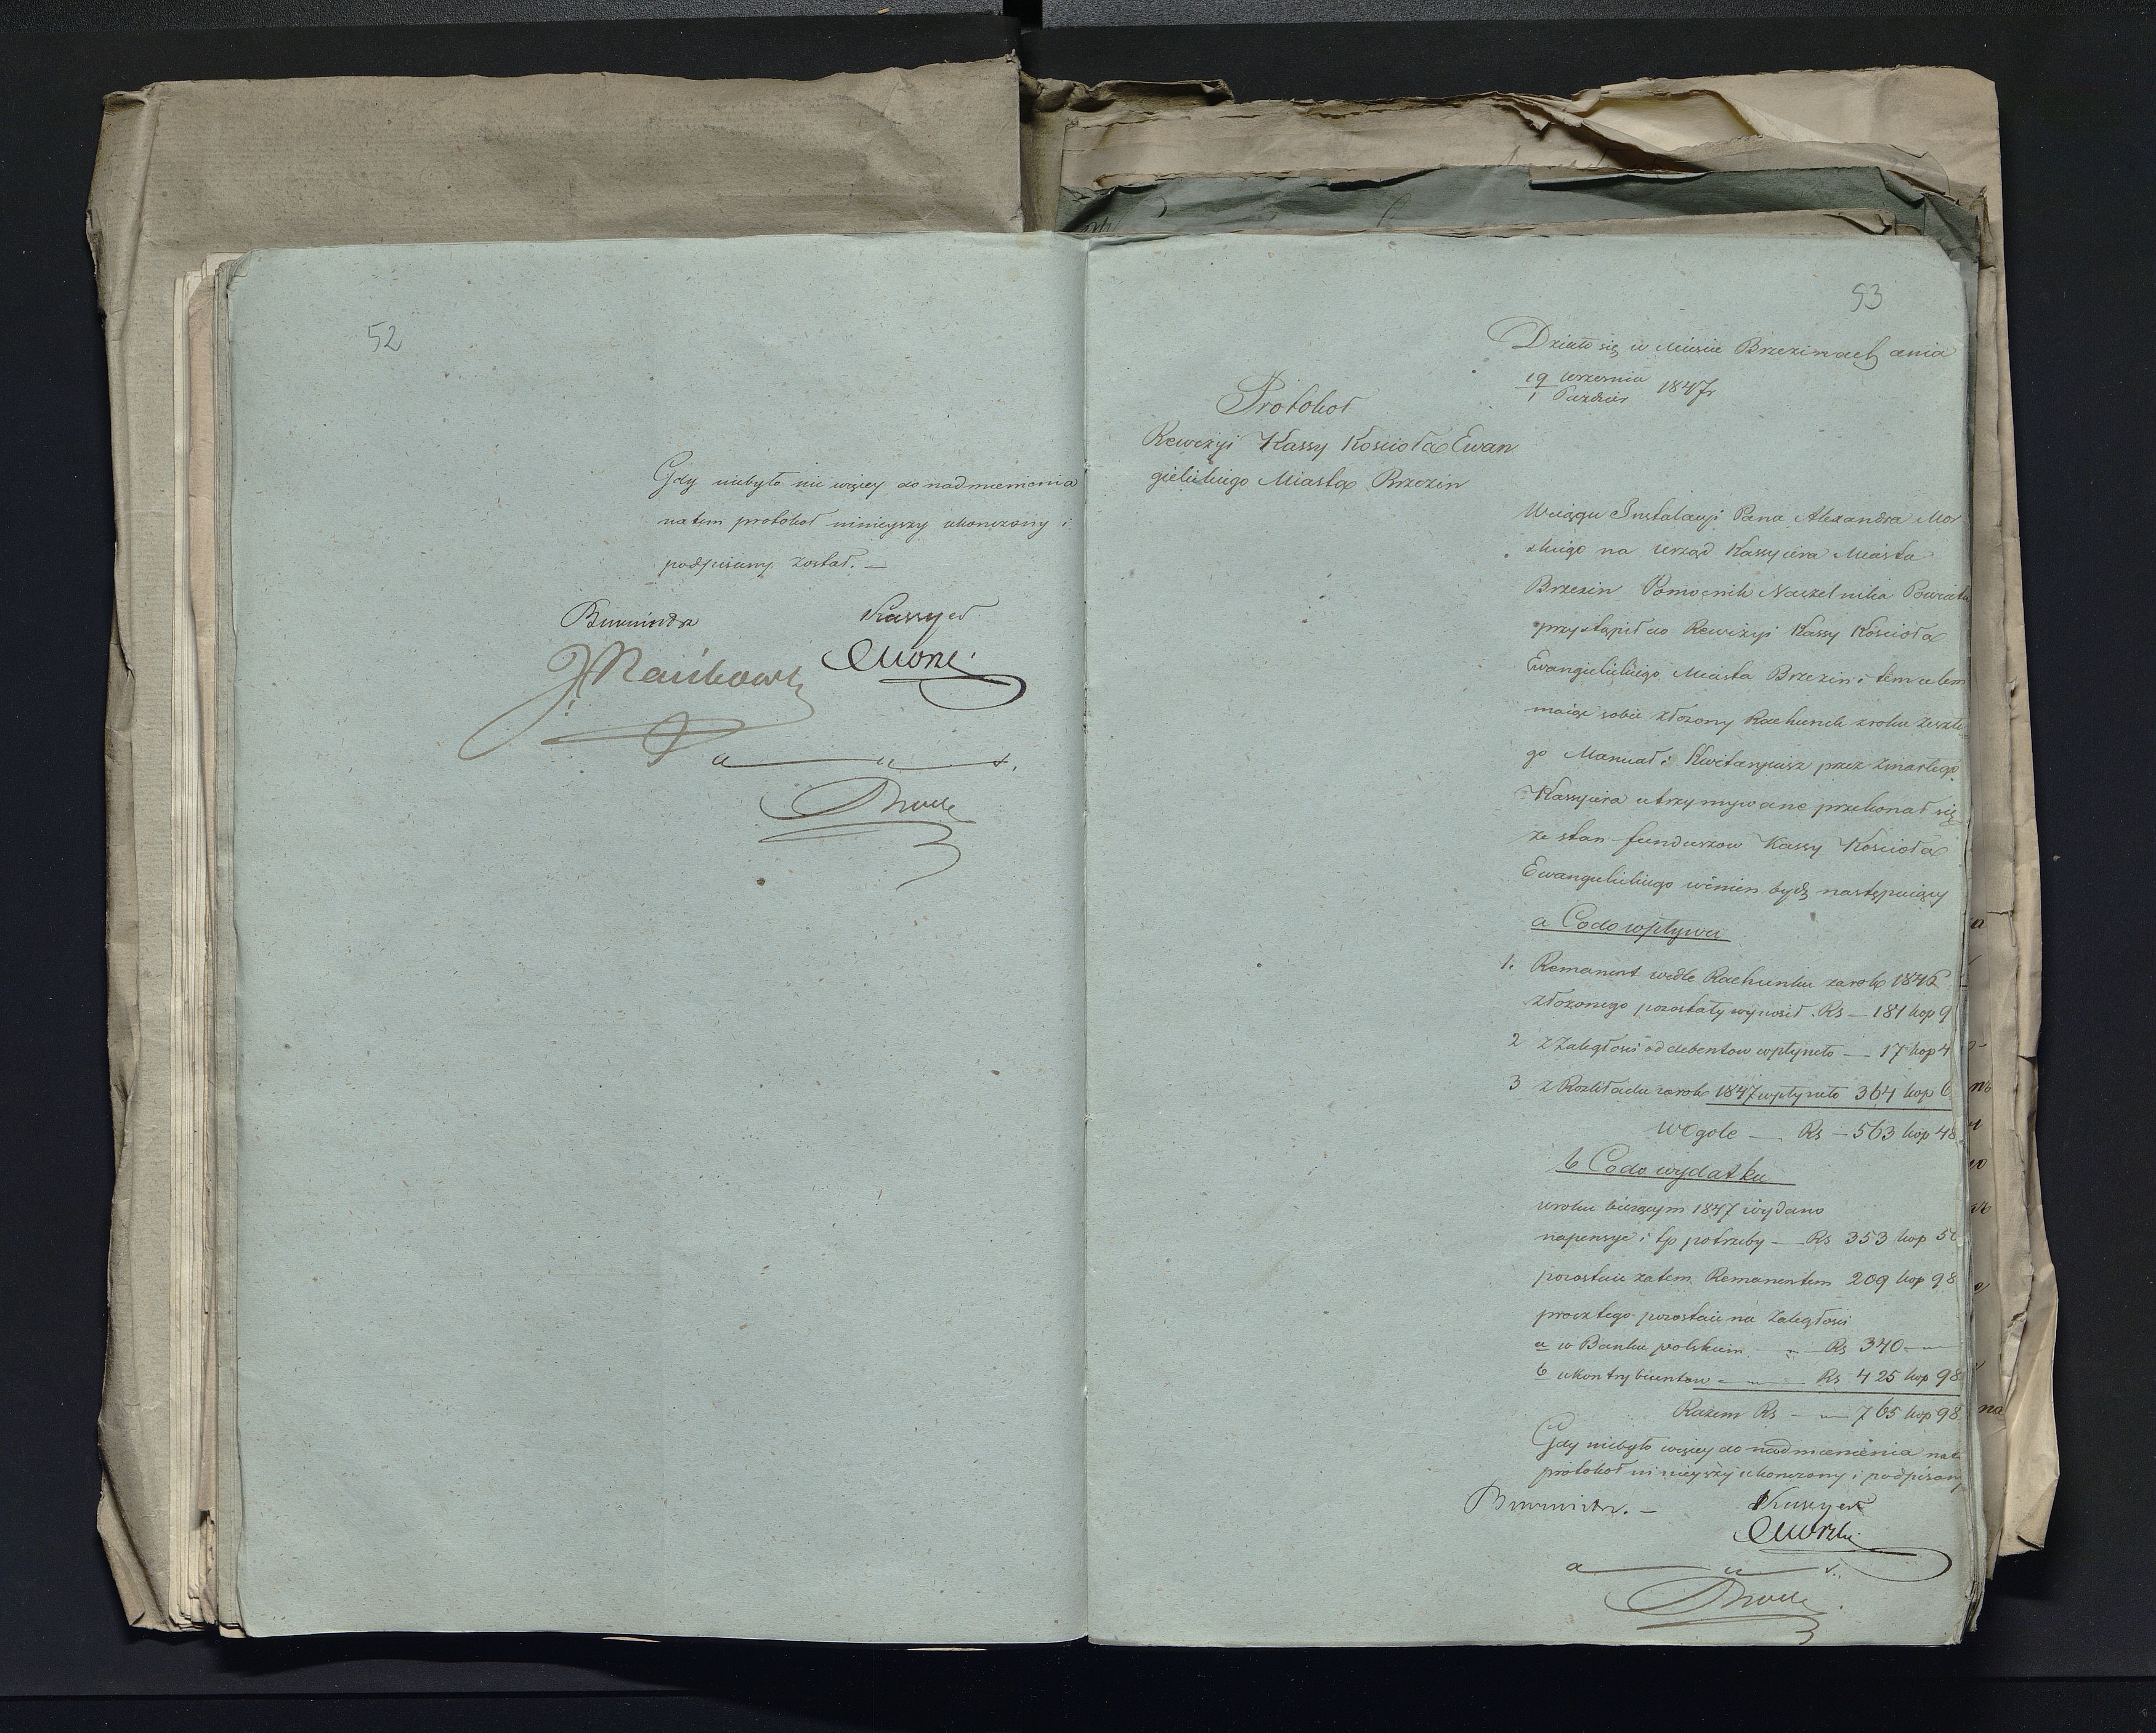 52
Gdy niebyło nic więcey do nadmienienia
natem protokoł ninieyszy ukończony i
podpisany został. —
Burmistrz Kassyer
a u s.
53
Działo się w Mieście Brzezinach dnia
19 Września
1 Paździer 1847r
Protokoł
Rewizyi Kassy Kościoła Ewan
gielickiego Miasta Brzezin
Wciągu Instalacyi Pana Alexandra Mo
skiego na urząd Kassyiera Miasta
Brzezin Pomocnik Naczelnika Powiatu
przystąpił do Rewizyi Kassy Kościoła
Ewangielickiego Miasta Brzezin i tem celem
maiąc sobie złożony Rachunek zroku zeszłe
go Manuał i Kwitaryusz przez zmarłego
Kassyiera utrzymywane przekonał się
że stan funduszow Kassy Kościoła
Ewangielickiego winien bydź następuiący
a Codo wpływu
1. Remanent wedle Rachunku zarok 1846
złożonego pozostały wynosił. Rs — 181 kop 9
2 z Zaległości od debentow wpłynęło — 17 kop 4
3 z Rozkładu zarok 1847 wpłynęło 364 kop 6
Wogole — Rs — 563 kop 48
b Codo wydatku
wroku bieżącym 1847 wydano
napensye i tp potrzeby — Rs 353 kop 50
pozostaie zatem Remanentem 209 kop 98
procztego pozostaie na Zaległości
a w Banku polskim — Rs 340 —
b ukontrybuentow — Rs 425 kop 98
Razem Rs — 765 kop 98
Gdy niebyło więcey do nadmienienia nate
protokoł ninieyszy ukończony i podpisany
Burmistrz. — Kassyer
a u s.